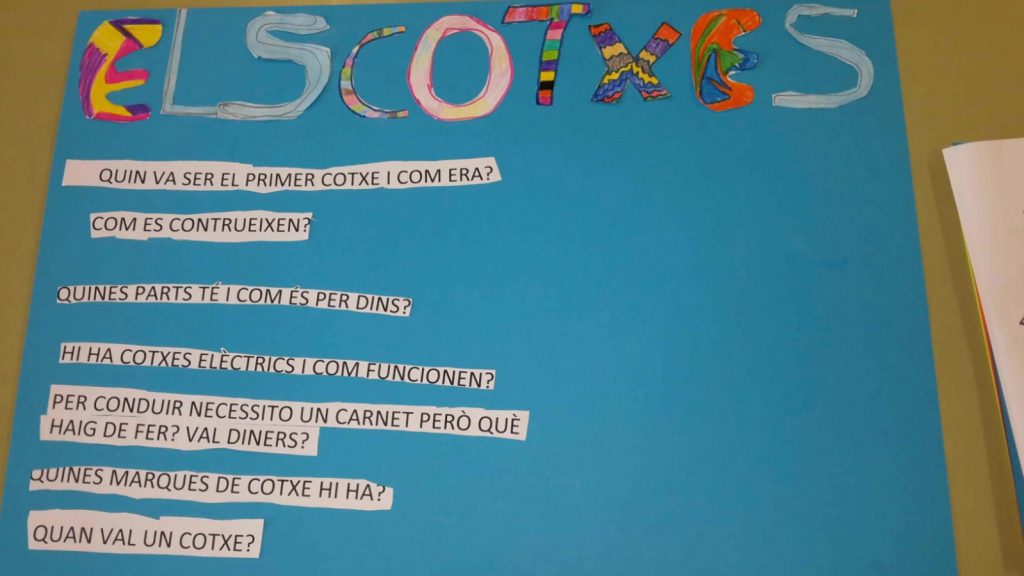 ELS COTXES
QUIN VA SER EL PRIMER COTXE I COM ERA?
COM ES CONTRUEIXEN?
QUINES PARTS TÉ I COM ÉS PER DINS?
HI HA COTXES ELÈCTRICS I COM FUNCIONEN?
PER CONDUIR NECESSITO UN CARNET PERÒ QUÈ
HAIG DE FER? VAL DINERS?
QUINES MARQUES DE COTXE HI HA?
QUAN VAL UN COTXE?